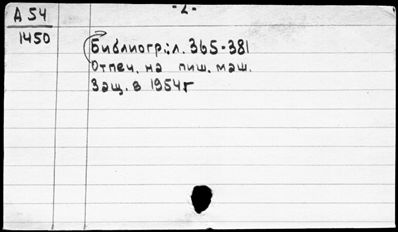 А 54
-2-
1450
Библиогр.: л. 365-381
Отпеч. на пиш. маш.
Защ. в 1954г